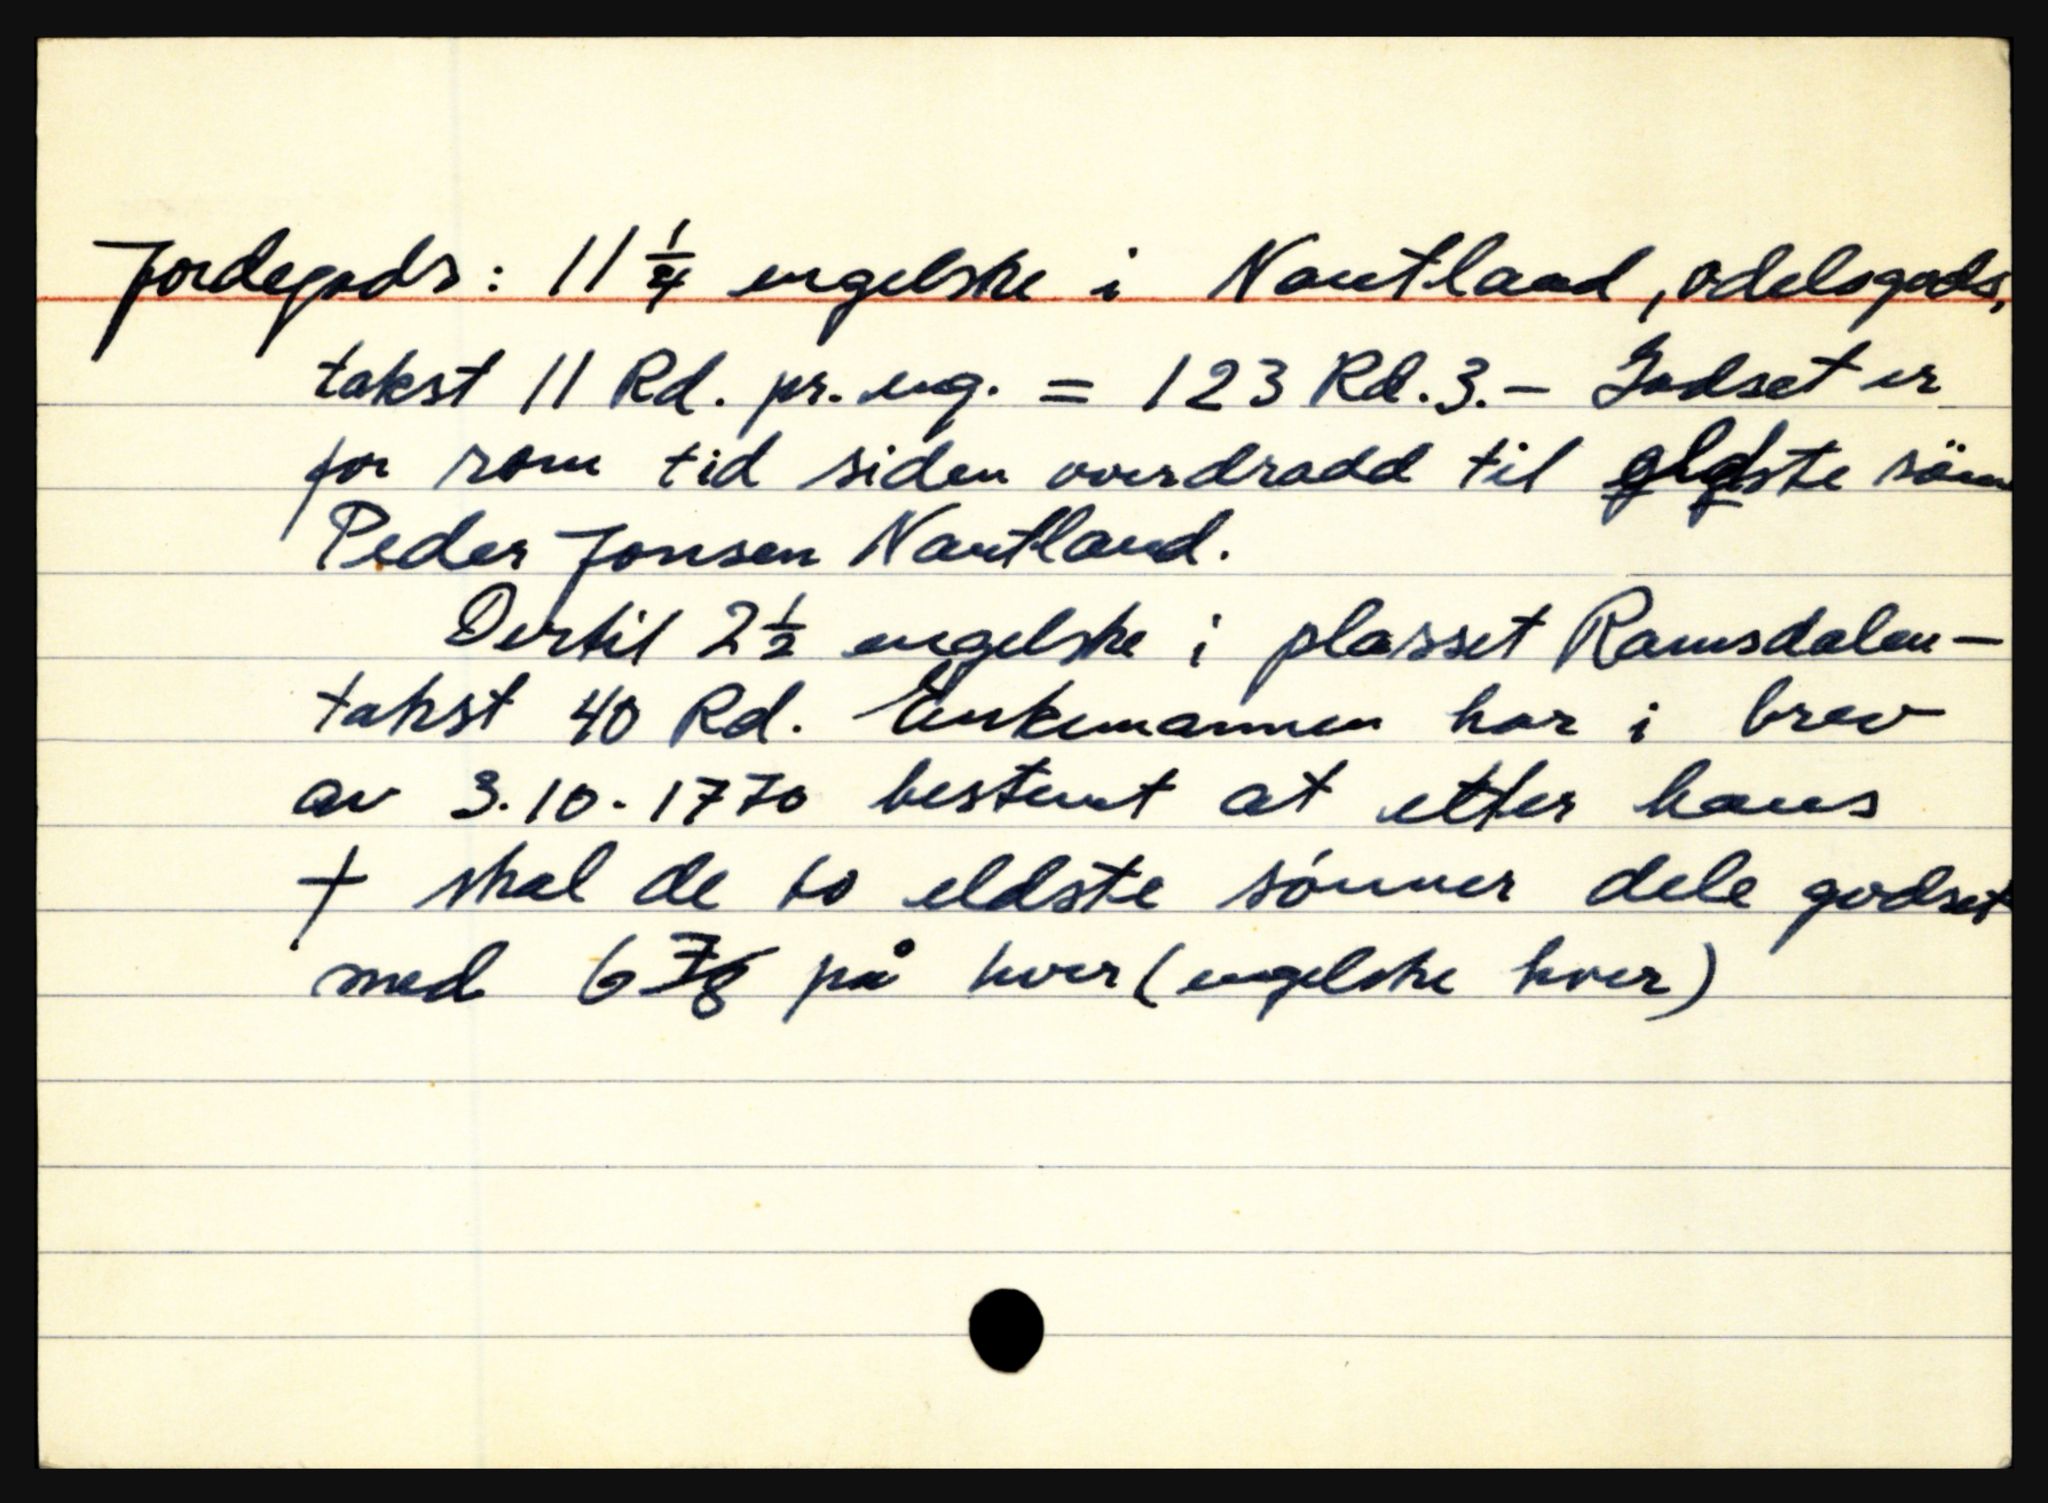 Jordegods: 11 1/4 engelske i Nautland, odelsgods,
takst 11 Rd. pr. eng. = 123 Rd. 3. - Godset er
for rom tid siden overdradd til eldste sönn
Peder Jonsen Nautland.
Dertil 2 1/2 engelske i plasset Ramsdalen -
takst 40 Rd. Enkemannen har i brev
av 3.10.1770 bestemt at etter hans
† skal de to eldste sönner dele godset
med 6 7/8 på hver (engelske hver)